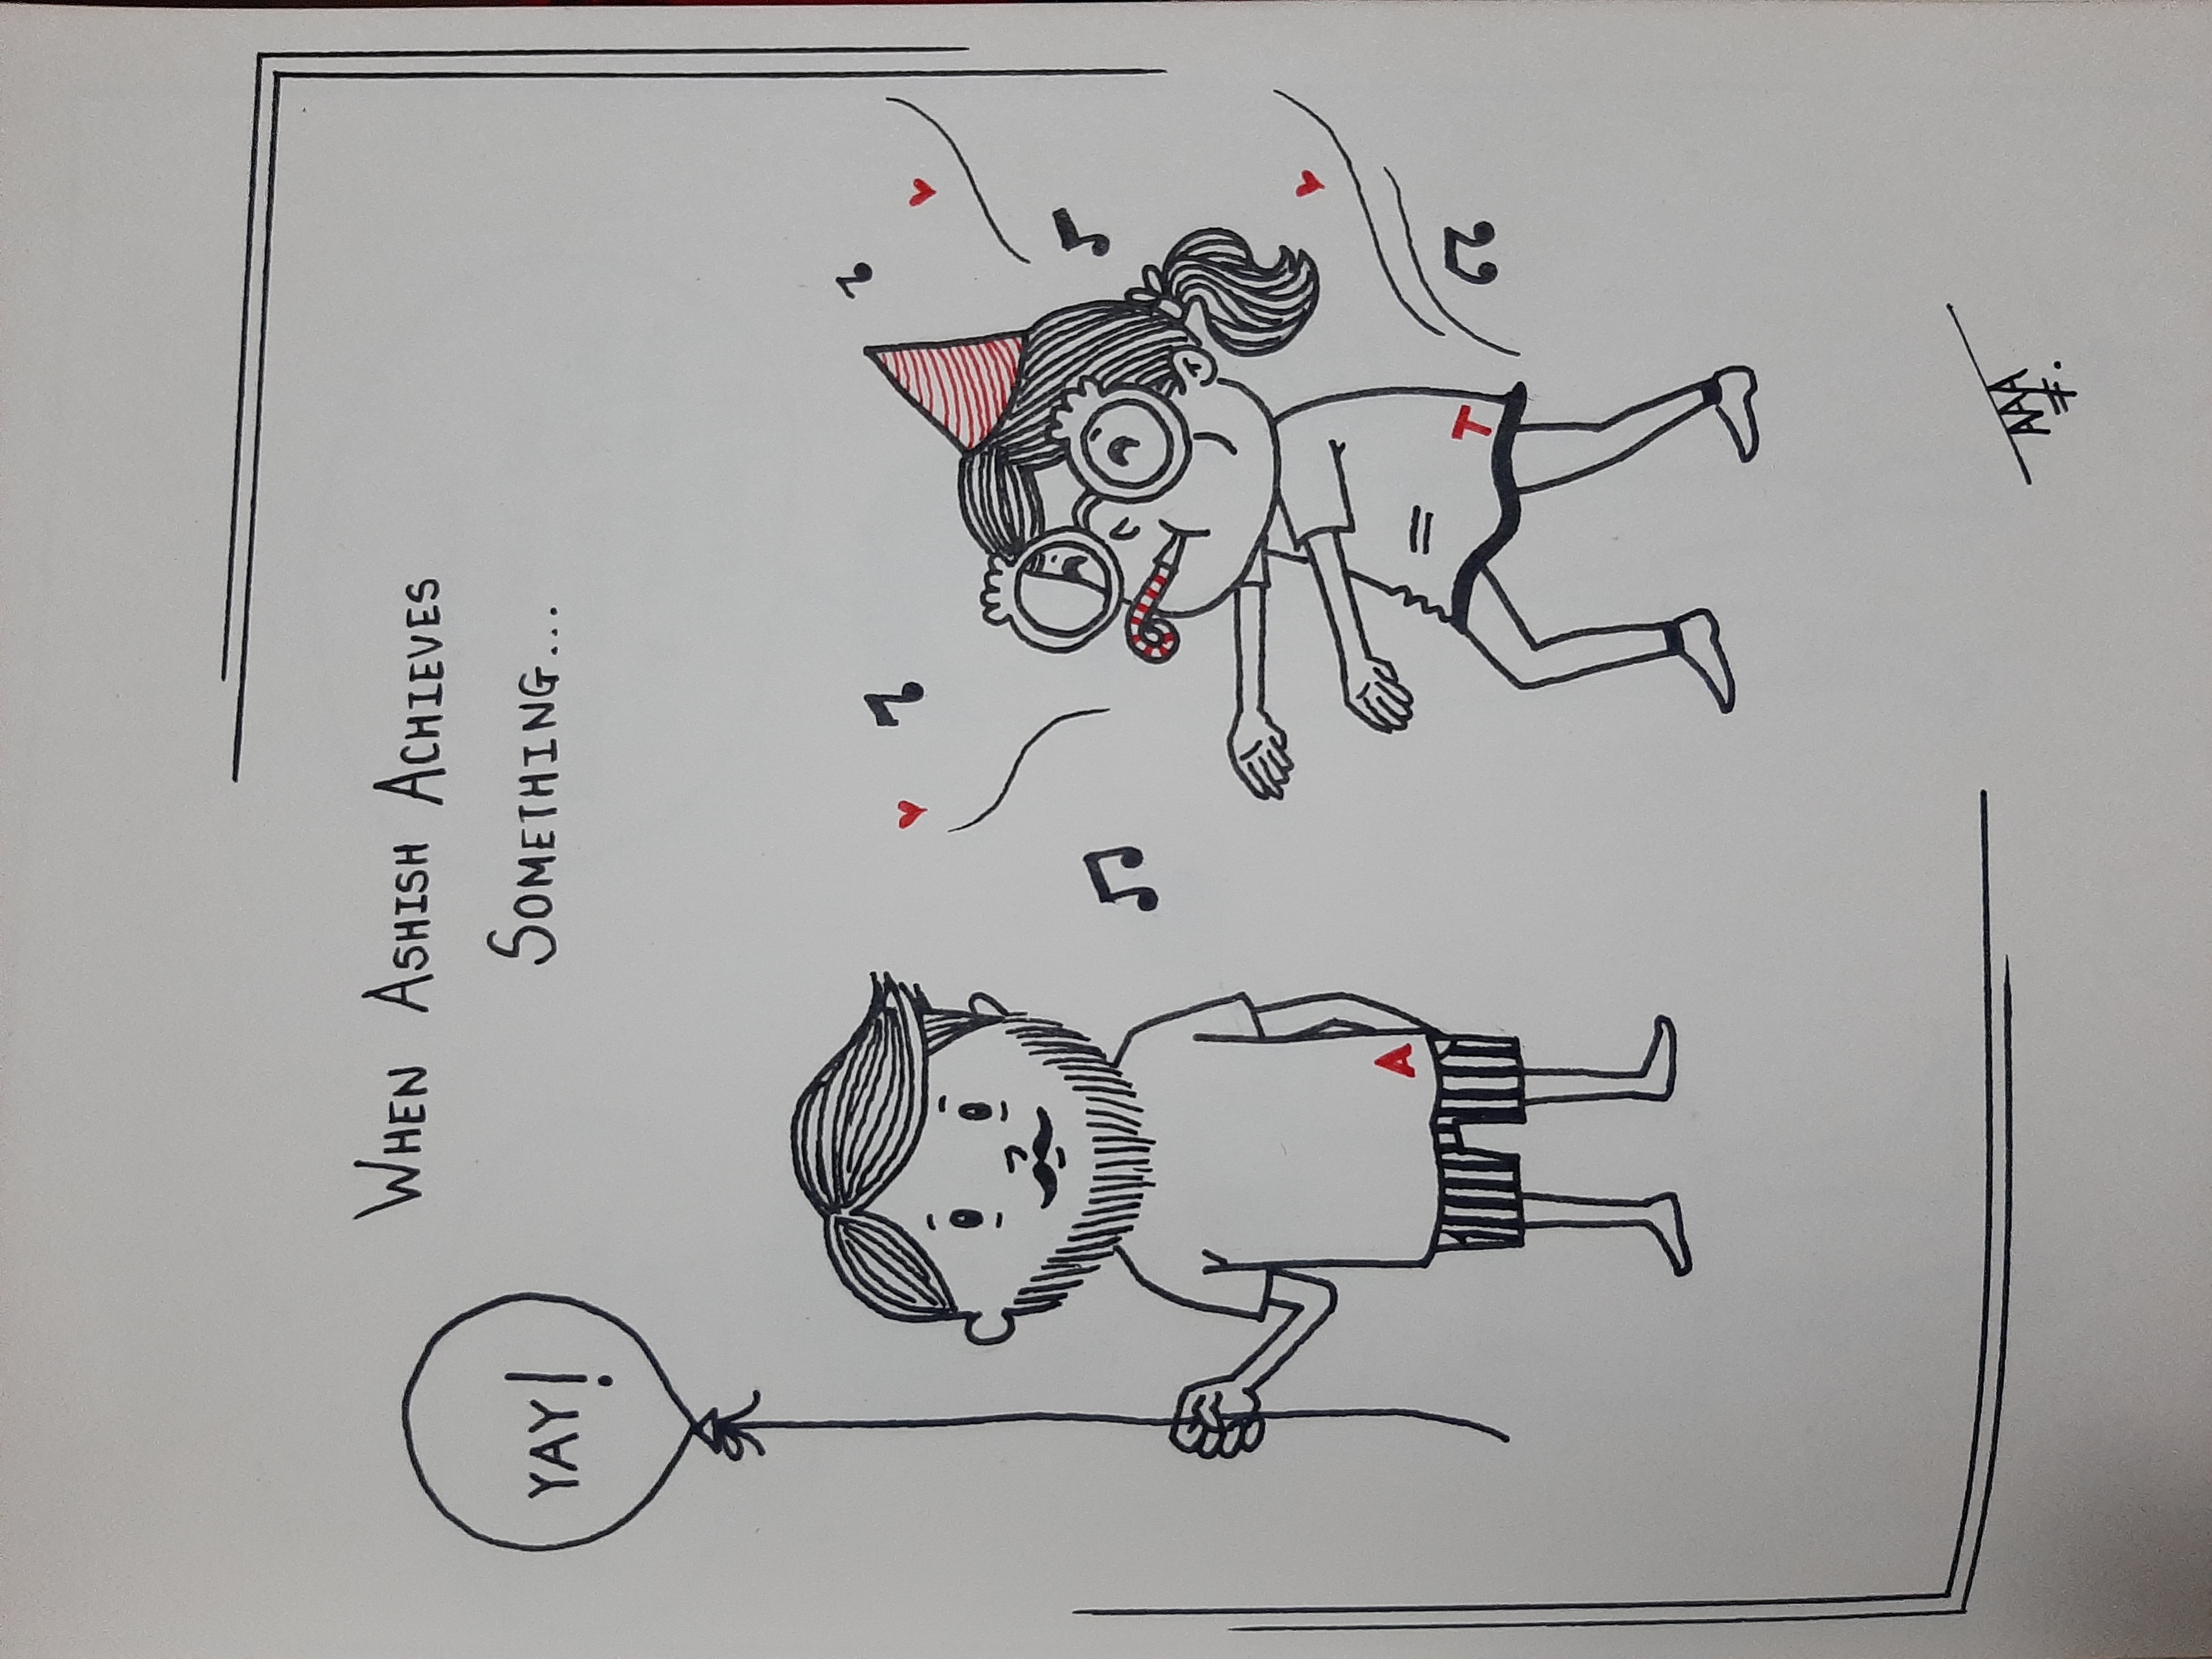 WHEN ASHISH ACHIEVES
SOMETHING...
YAY!
A
T
AAA